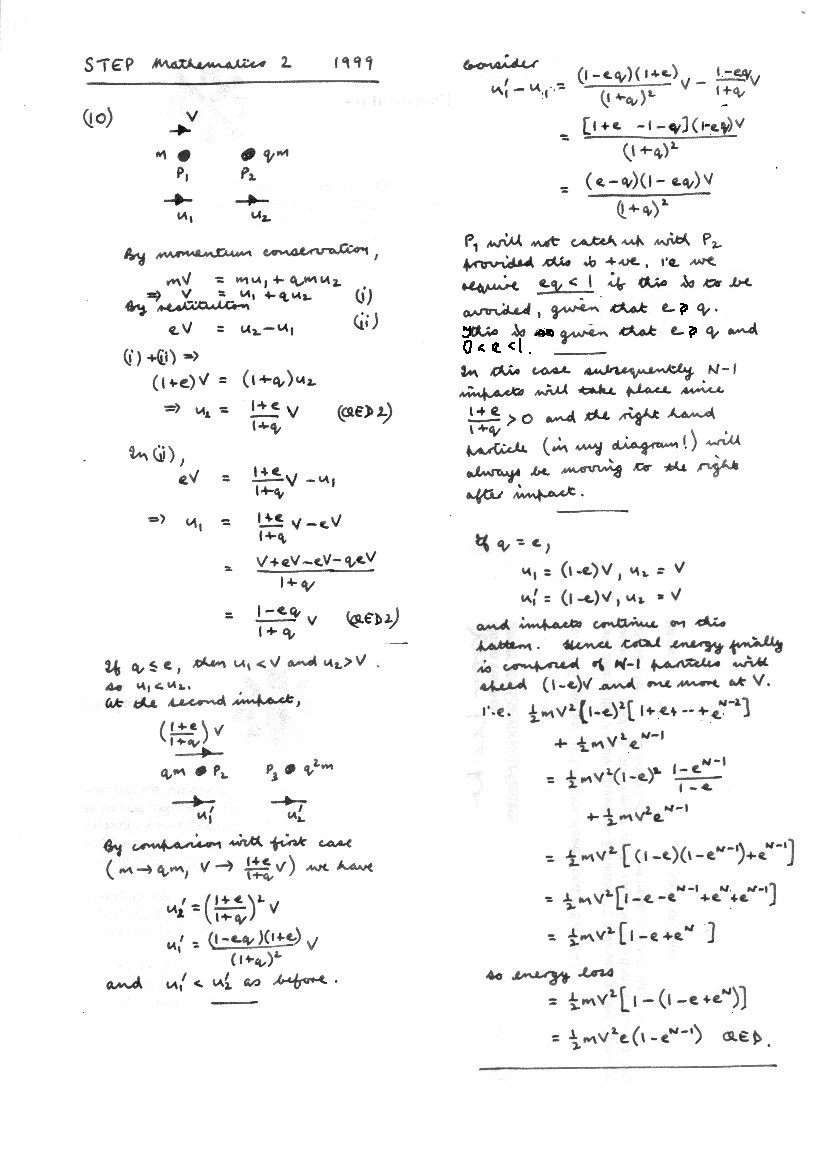 STEP Mathematics 2 1999
(10)
V
m P₁ P₂ qm
u₁ u₂
By momentum conservation,
mV = mu₁ + qmu₂
⇒ V = u₁ + qu₂ (i)
By restitution
eV = u₂ - u₁ (ii)
(i) + (ii) ⇒
(1+e)V = (1+q)u₂
⇒ u₂ = (1+e)/(1+q) V (QED2)
In (ii),
eV = (1+e)/(1+q) V - u₁
⇒ u₁ = (1+e)/(1+q) V - eV
= (V+eV-eV-qeV)/(1+q)
= (1-eq)/(1+q) V (QED2)
If q ≤ e, then u₁ < V and u₂ > V.
so u₁ < u₂.
At the second impact,
((1+e)/(1+q)) V
qm P₂ P₃ q²m
u₁' u₂'
By comparison with first case
(m → qm, V → (1+e)/(1+q) V) we have
u₂' = ((1+e)/(1+q))² V
u₁' = (1-eq)(1+e)/(1+q)² V
and u₁' < u₂' as before.
Consider
u₁' - u₁ = (1-eq)(1+e)/(1+q)² V - (1-eq)/(1+q) V
= [1+e -1-q](1-eq)V/(1+q)²
= (e-q)(1-eq)V/(1+q)²
P₁ will not catch up with P₂
provided this is +ve, i.e we
require eq < 1 if this is to be
avoided, given that e ⩾ q.
This is given that e ⩾ q and
0 < e < 1.
In this case subsequently N-1
impacts will take place since
(1+e)/(1+q) > 0 and the right hand
particle (in my diagram!) will
always be moving to the right
after impact.
If q = e,
u₁ = (1-e)V, u₂ = V
u₁' = (1-e)V, u₂ = V
and impacts continue on this
pattern. Hence total energy finally
is composed of N-1 particles with
speed (1-e)V and one more at V.
i.e. ½mV²(1-e)²[1+e+--+e^(N-2)]
+ ½mV²e^(N-1)
= ½mV²(1-e)² (1-e^(N-1))/(1-e)
+ ½mV²e^(N-1)
= ½mV²[(1-e)(1-e^(N-1))+e^(N-1)]
= ½mV²[1-e-e^(N-1)+e^N+e^(N-1)]
= ½mV²[1-e+e^N]
so energy loss
= ½mV²[1-(1-e+e^N)]
= ½mV²e(1-e^(N-1)) QED.